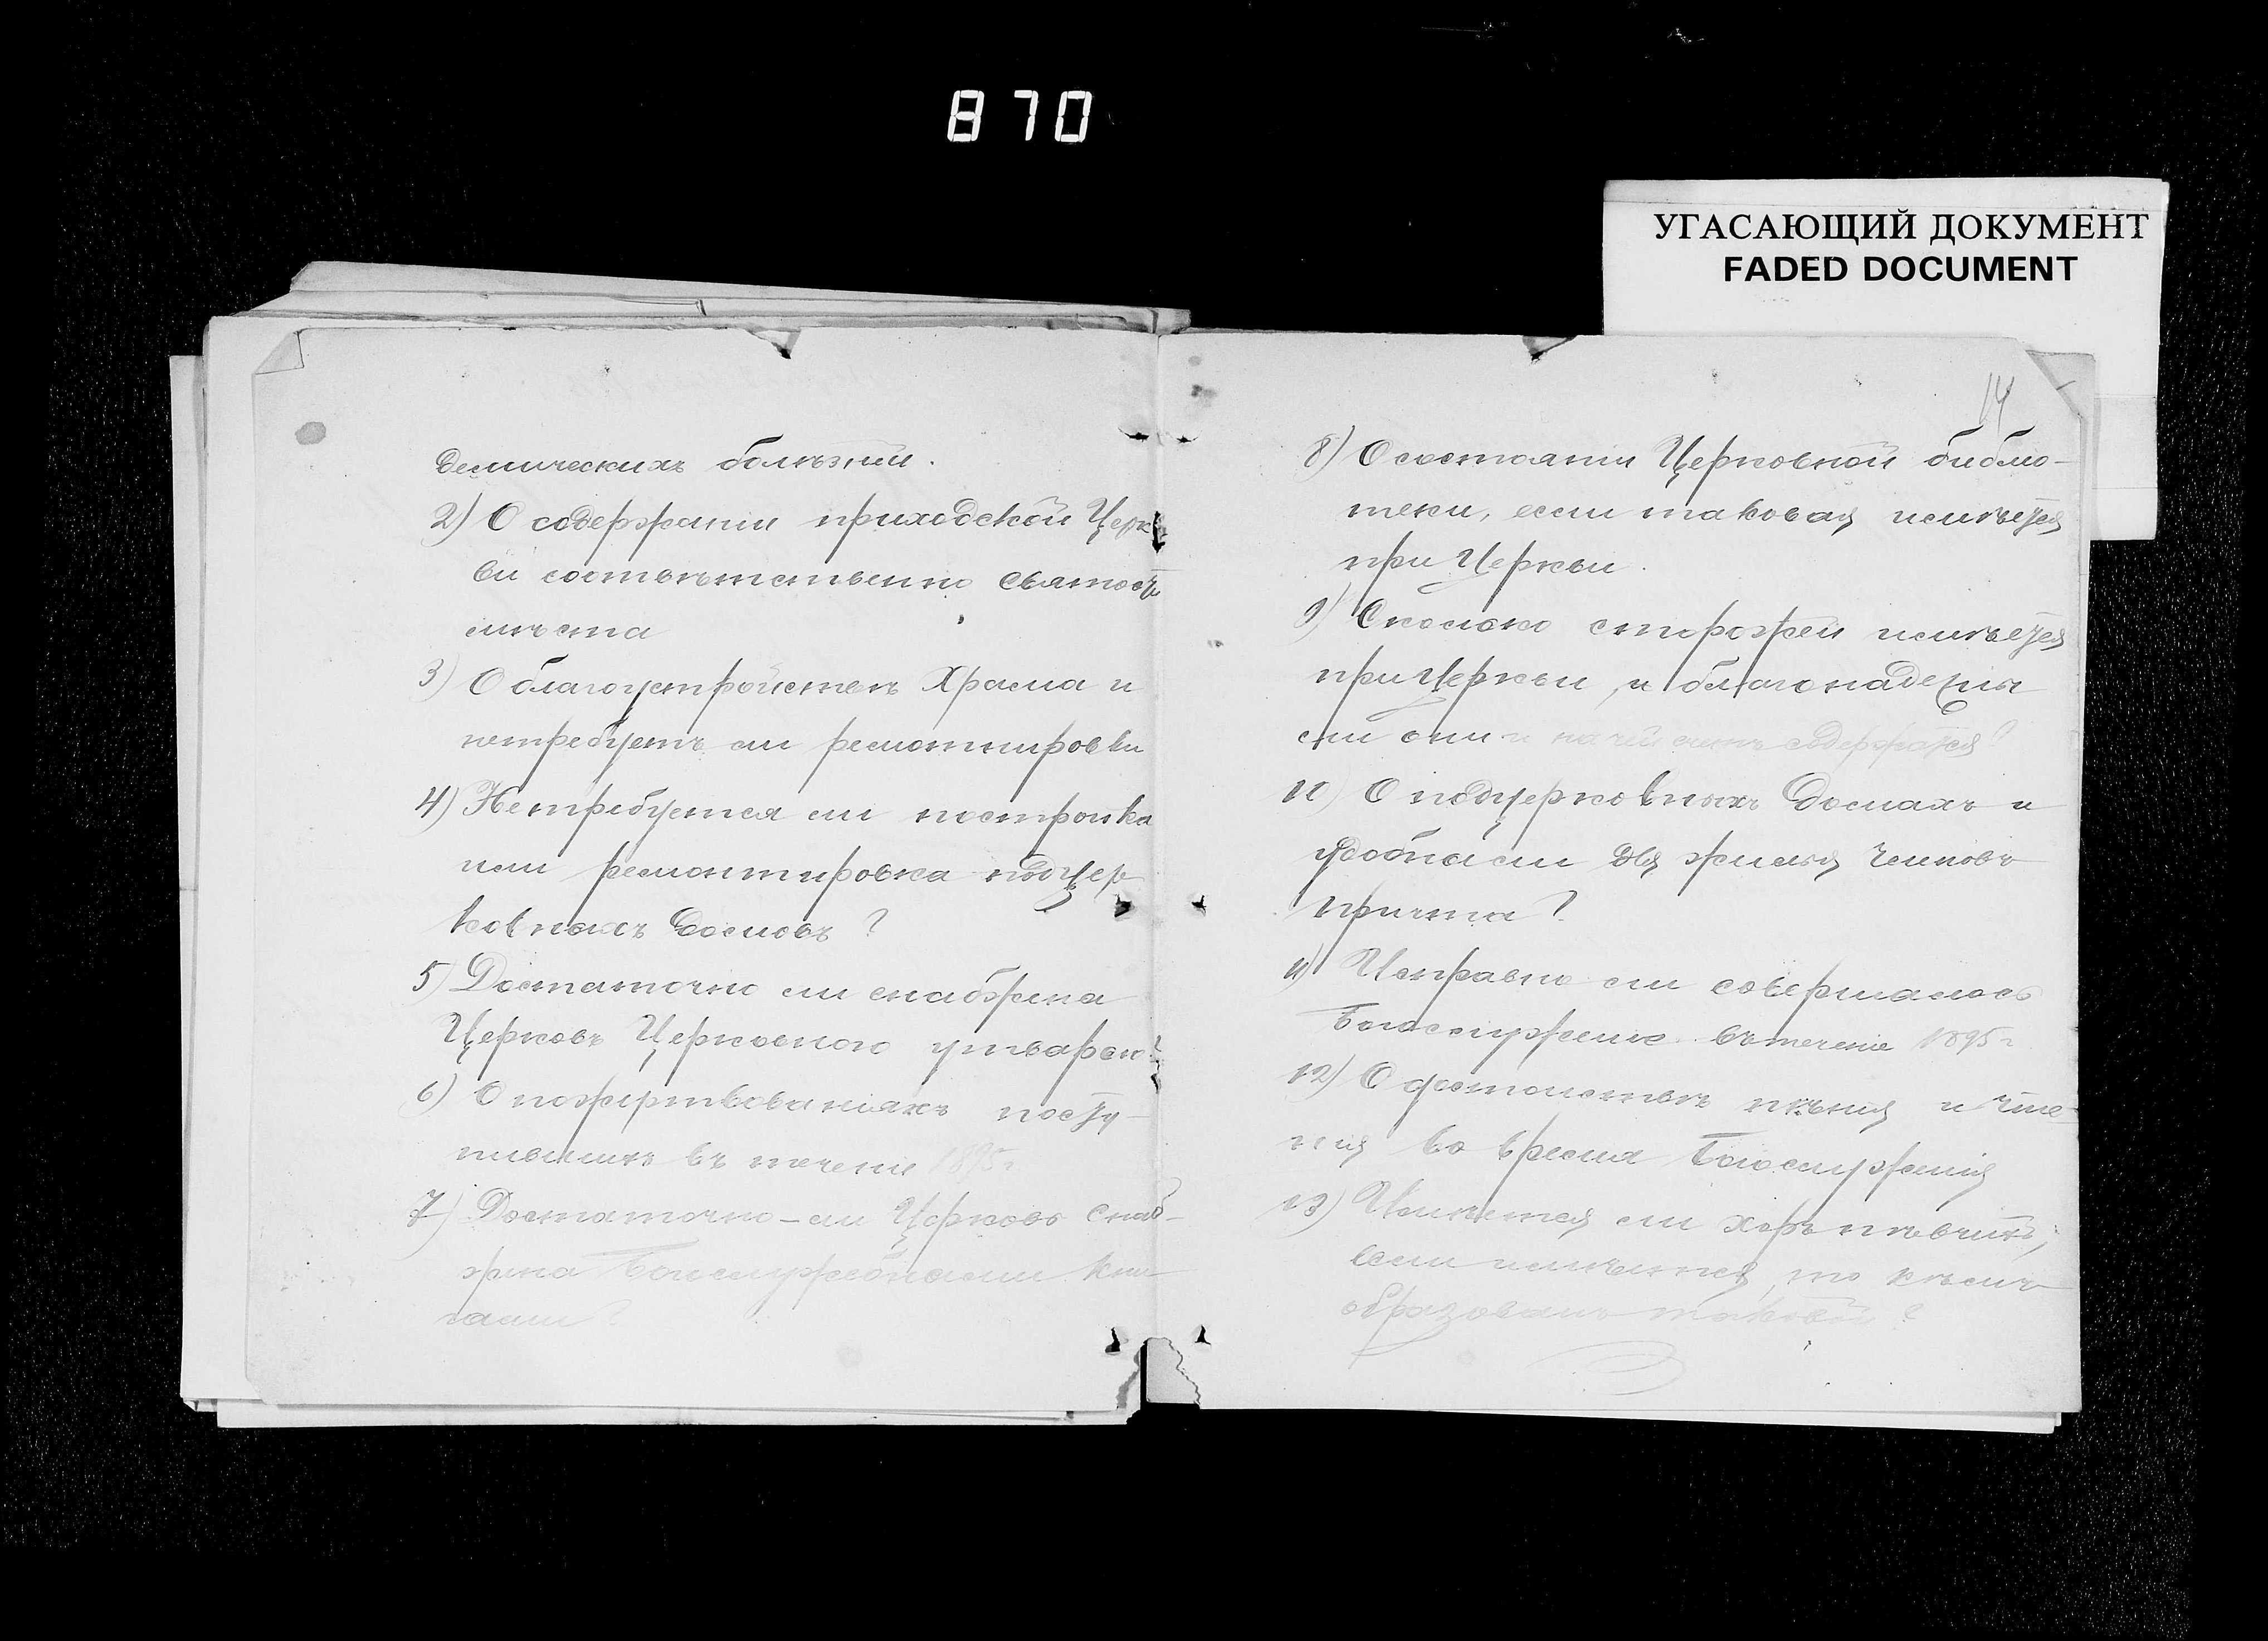 870
УГАСАЮЩИЙ ДОКУМЕНТ
FADED DOCUMENT
демическихъ болѣзней.
2) О содержаніи приходской Церк
ви соотвѣтственно святости
мѣста
3) О благоустройствѣ Храма и
нетребуетъ ли ремонтировки
4) Нетребуется ли постройка
или ремонтировка подцер
ковныхъ домовъ?
5) Достаточно ли снабжена
Церковь Церковною утварью?
6) О пожертвованіяхъ посту-
пившихъ въ теченіи 1895 г.
7) Достаточно-ли Церковь снаб-
жена Богослужебными кни
гами?
14
8) О состояніи Церковной библіо-
теки, если таковая имѣется
при Церкви.
9) Сколько сторожей имѣется
при Церкви, и благонадежны
ли они и на чей счетъ содержатся?
10) О подцерковныхъ домахъ и
удобны ли для жилья членовъ
причта?
11) Исправно ли совершалось
Богослуженіе въ теченіе 1895 г.
12) О достоинствѣ пѣнія и чте-
нія во время Богослуженія
13) Имѣется ли хоръ пѣвчихъ,
если имѣется, то кѣмъ
образованъ таковой?